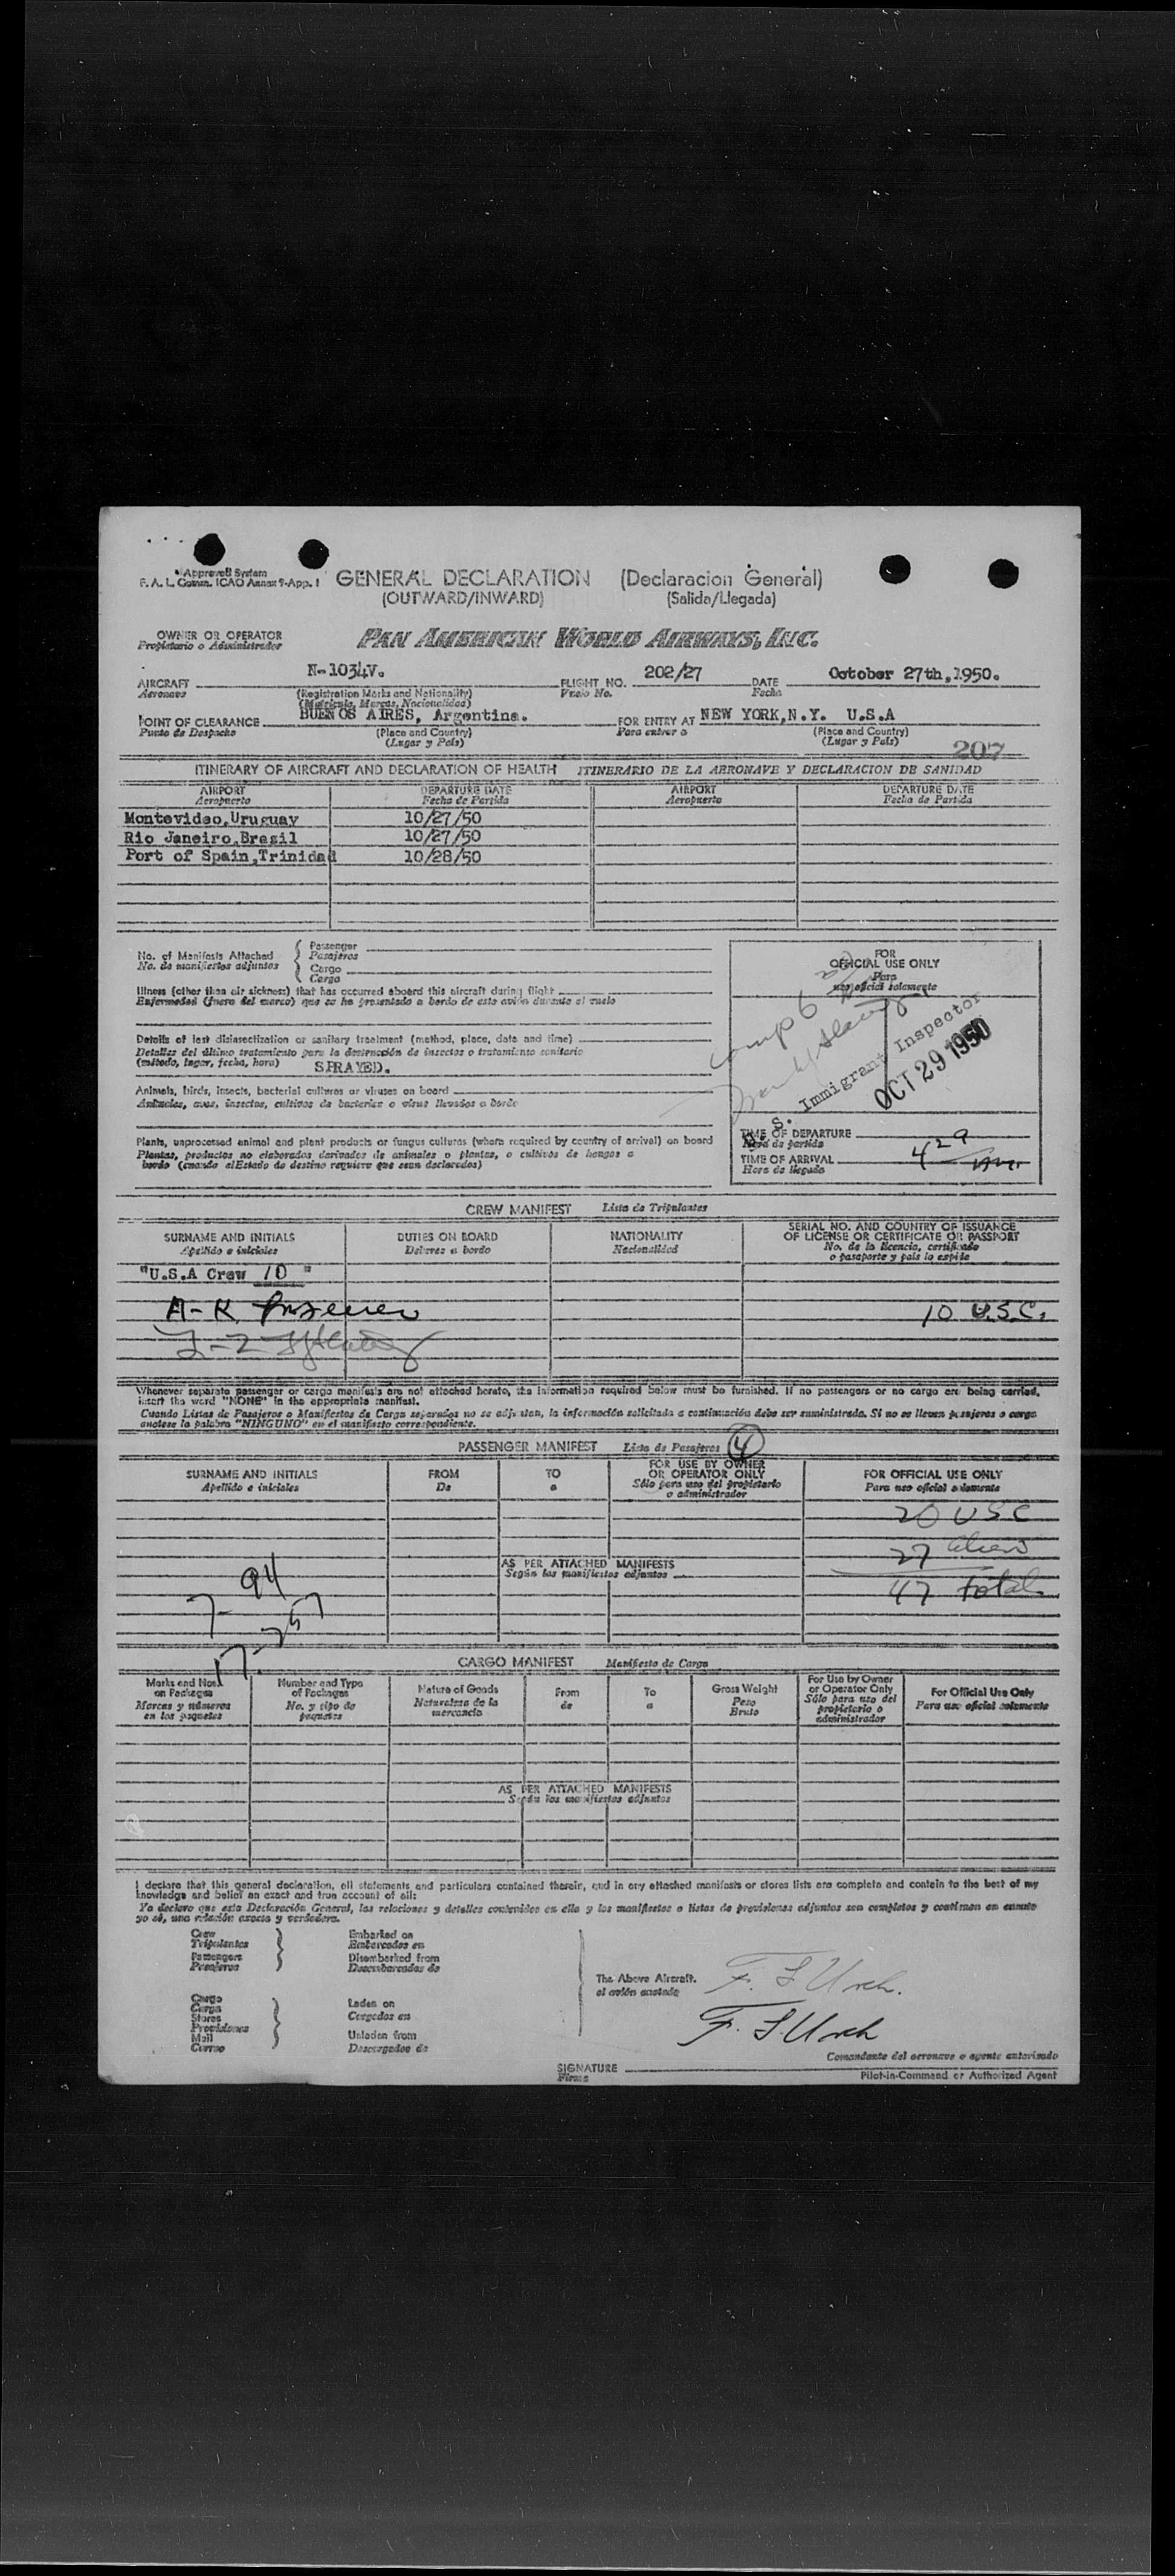 Approved System
F. A. L. Comm. ICAO Annex 9-App. 1
GENERAL DECLARATION (Declaracion General)
(OUTWARD/INWARD) (Salida/Llegada)
OWNER OR OPERATOR
Propietario o Administrador
PAN AMERICAN WORLD AIRWAYS, INC.
AIRCRAFT N-1034V. FLIGHT NO. 202/27 DATE October 27th, 1950.
Aeronave (Registration Marks and Nationality) Vuelo No. Fecha
(Matricula, Marcas, Nacionalidad)
POINT OF CLEARANCE BUENOS AIRES, Argentina. FOR ENTRY AT NEW YORK, N.Y. U.S.A
Punto de Despacho (Place and Country) Para entrar a (Place and Country)
(Lugar y País) (Lugar y País)
207
ITINERARY OF AIRCRAFT AND DECLARATION OF HEALTH ITINERARIO DE LA AERONAVE Y DECLARACION DE SANIDAD
AIRPORT DEPARTURE DATE AIRPORT DEPARTURE DATE
Aeropuerto Fecha de Partida Aeropuerto Fecha de Partida
Montevideo, Uruguay 10/27/50
Rio Janeiro, Brasil 10/27/50
Port of Spain, Trinidad 10/28/50
No. of Manifests Attached
No. de manifiestos adjuntos
Passenger
Pasajeros
Cargo
Carga
Illness (other than air sickness) that has occurred aboard this aircraft during flight
Enfermedad (fuera del mareo) que se ha presentado a bordo de este avión durante el vuelo
Details of last disinsectization or sanitary treatment (method, place, date and time)
Detalles del último tratamiento para la destrucción de insectos o tratamiento sanitario
(método, lugar, fecha, hora) SPRAYED.
Animals, birds, insects, bacterial cultures or viruses on board
Animales, aves, insectos, cultivos de bacterias o virus llevados a bordo
Plants, unprocessed animal and plant products or fungus cultures (where required by country of arrival) on board
Plantas, productos no elaborados derivados de animales o plantas, o cultivos de hongos a
bordo (cuando el Estado de destino requiere que sean declarados)
FOR
OFFICIAL USE ONLY
Para
uso oficial solamente
U. S. Immigrant Inspector
OCT 29 1950
TIME OF DEPARTURE
Hora de partida
TIME OF ARRIVAL 4 29
Hora de llegada
CREW MANIFEST Lista de Tripulantes
SURNAME AND INITIALS DUTIES ON BOARD NATIONALITY SERIAL NO. AND COUNTRY OF ISSUANCE
OF LICENSE OR CERTIFICATE OR PASSPORT
Apellido e iniciales Deberes a bordo Nacionalidad No. de la licencia, certificado
o pasaporte y país lo expide
"U.S.A Crew 10 "
A-K
10 U.S.C.
L-Z
Whenever separate passenger or cargo manifests are not attached hereto, the information required below must be furnished. If no passengers or no cargo are being carried,
insert the word "NONE" in the appropriate manifest.
Cuando Listas de Pasajeros o Manifiestos de Carga separados no se adjuntan, la información solicitada a continuación debe ser suministrada. Si no se llevan pasajeros o carga
anotese la palabra "NINGUNO" en el manifiesto correspondiente.
PASSENGER MANIFEST Lista de Pasajeros 4
SURNAME AND INITIALS FROM TO FOR USE BY OWNER
OR OPERATOR ONLY FOR OFFICIAL USE ONLY
Apellido e iniciales De a Sólo para uso del propietario
o administrador Para uso oficial solamente
20 USC
27 aliens
47 total
AS PER ATTACHED MANIFESTS
Según los manifiestos adjuntos
94
CARGO MANIFEST Manifiesto de Carga
Marks and Nos. on Packages Number and Type of Packages Nature of Goods From To Gross Weight For Use by Owner or Operator Only For Official Use Only
Marcas y números en los paquetes No. y tipo de paquetes Naturaleza de la mercancía de a Peso Bruto Sólo para uso del propietario o administrador Para uso oficial solamente
AS PER ATTACHED MANIFESTS
Según los manifiestos adjuntos
I declare that this general declaration, all statements and particulars contained therein, and in any attached manifests or stores lists are complete and contain to the best of my
knowledge and belief an exact and true account of all:
Yo declaro que esta Declaración General, las relaciones y detalles contenidos en ella y los manifiestos o listas de provisiones adjuntos son completos y contienen en cuanto
yo sé, una relación exacta y verdadera.
Crew
Tripulantes
Passengers
Pasajeros
Embarked on
Embarcados en
Disembarked from
Desembarcados de
Cargo
Carga
Stores
Provisiones
Mail
Correo
Laden on
Cargados en
Unladen from
Descargados de
The Above Aircraft.
el avión anotado
F. S. Urch.
F. S. Urch
Comandante del aeronave o agente autorizado
SIGNATURE
Firma
Pilot-in-Command or Authorized Agent